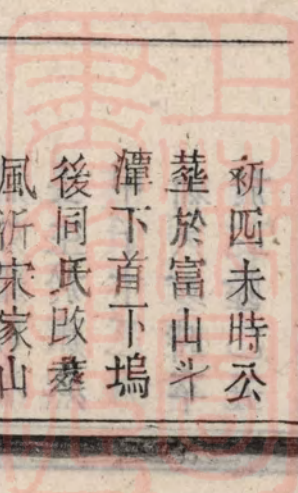 初四未時公
塟於富山斗
潭下首下塢
後同氏改塟
風沂宋家山